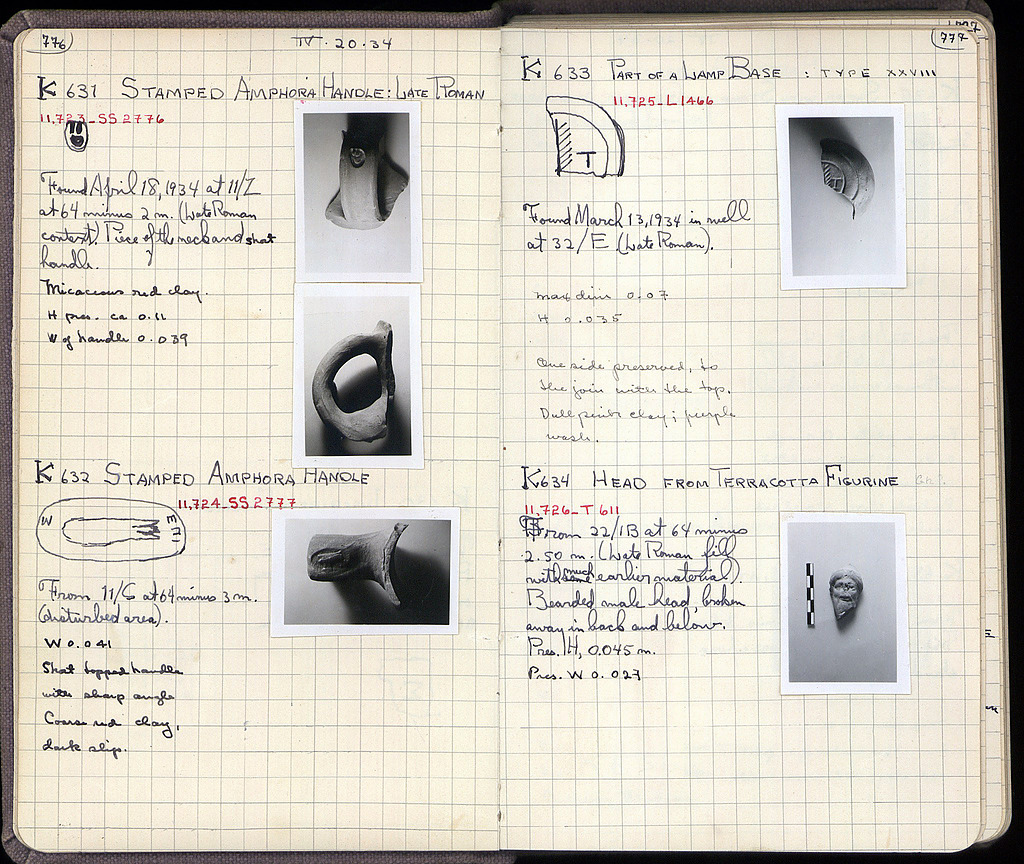 776
IV · 20 · 34
K 631 STAMPED AMPHORA HANDLE: LATE ROMAN
11,723 - SS 2776
Found April 18, 1934 at 11/Z
at 64 minus 2 m. (Late Roman
context). Piece of the neck and
handle.
Micaceous red clay.
H pres. ca 0.11
W of handle 0.039
K 632 STAMPED AMPHORA HANDLE
11,724 - SS 2777
W
From 11/ at 64 minus 3 m.
(disturbed area).
W 0.041
topped handle
with sharp angle
Coarse red clay,
dark slip.
777
K 633 PART OF A LAMP BASE : TYPE XXVIII
11,725 - L 1466
T
Found March 13, 1934 in well
at 32/E (Late Roman).
max dim 0.07
H 0.035
One side preserved, to
the join with the top.
Dull pink clay; purple
wash.
K 634 HEAD FROM TERRACOTTA FIGURINE
11,726 - T 611
From 22/IB at 64 minus
2.50 m. (Late Roman fill
with much earlier material).
Bearded male head, broken
away in back and below.
Pres. H, 0.045 m.
Pres. W 0.027